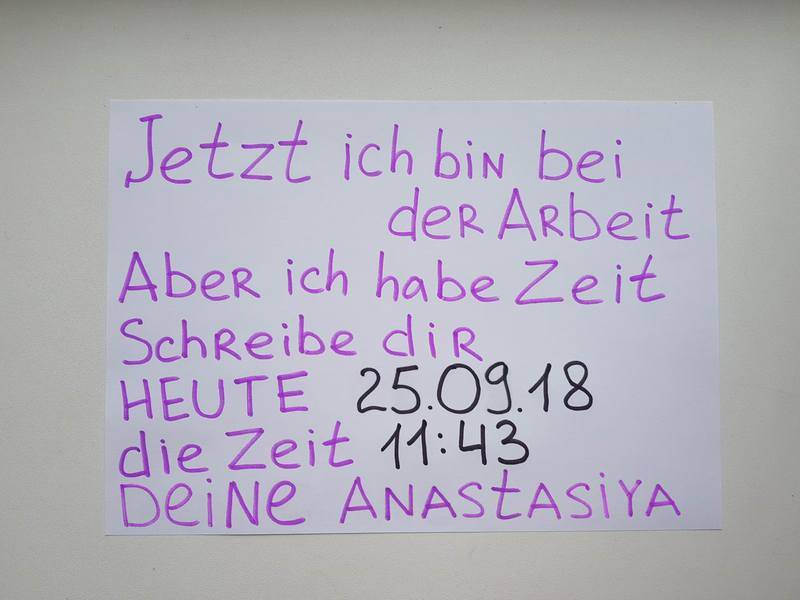 Jetzt ich bin bei
der Arbeit
Aber ich habe Zeit
Schreibe dir
HEUTE 25.09.18
die Zeit 11:43
Deine ANAStASiYA